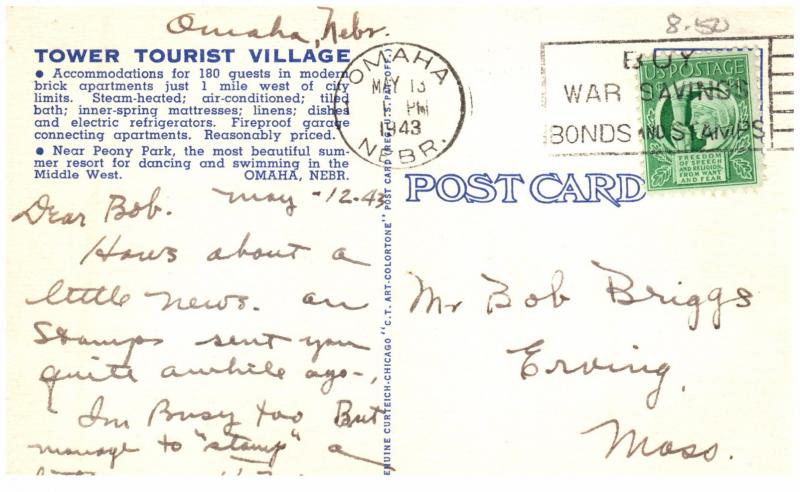 Omaha, Nebr.
8.50
TOWER TOURIST VILLAGE
● Accommodations for 180 guests in modern
brick apartments just 1 mile west of city
limits. Steam-heated; air-conditioned; tiled
bath; inner-spring mattresses; linens; dishes
and electric refrigerators. Fireproof garage
connecting apartments. Reasonably priced.
● Near Peony Park, the most beautiful sum-
mer resort for dancing and swimming in the
Middle West. OMAHA, NEBR.
OMAHA
MAY 13
PM
1943
NEBR.
BUY
WAR SAVINGS
BONDS AND STAMPS
US POSTAGE
FREEDOM
OF SPEECH
AND RELIGION,
FROM WANT
AND FEAR
POST CARD
May-12.43
Dear Bob.
Hows about a
little news. on
Stamps sent you
quite awhile ago-,
Im Busy too But
manage to "stamp" a
GENUINE CURTEICH-CHICAGO "C.T. ART-COLORTONE" POST CARD (REG. U.S. PAT. OFF.)
Mr Bob Briggs
Erving,
Mass.